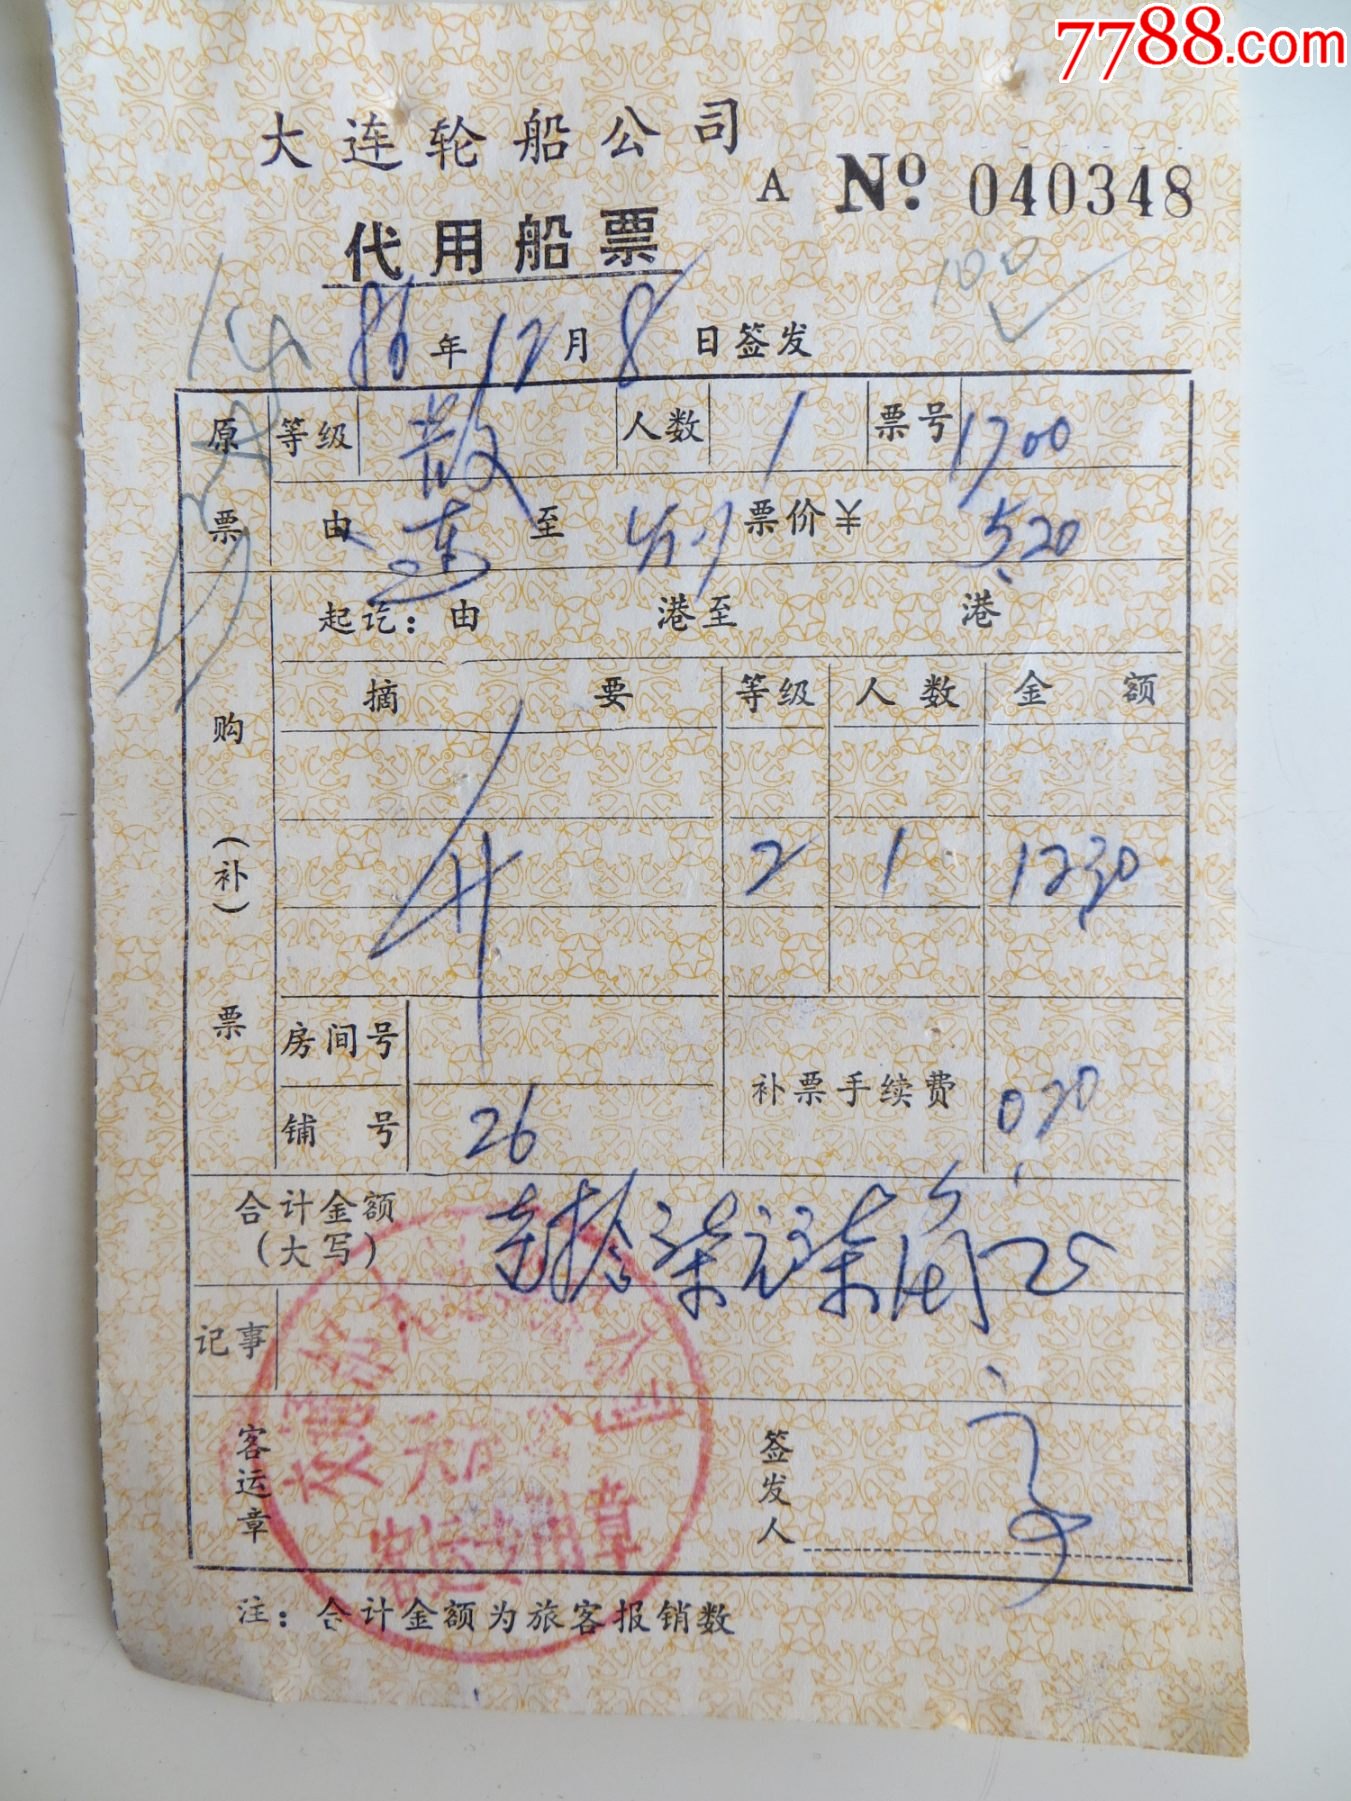 7788.com
大连轮船公司
A № 040348
代用船票
100
86年12月8日签发
原票 等级 散 人数 1 票号 1700
由 连 至 票价¥ 5.20
起讫：由 港至 港
购（补）票
摘要 等级 人数 金额
升 2 1 1230
房间号
铺号 26 补票手续费 0.20
合计金额（大写） 壹拾柒元柒角
记事
客运章 签发人
客运专用章
注：合计金额为旅客报销数